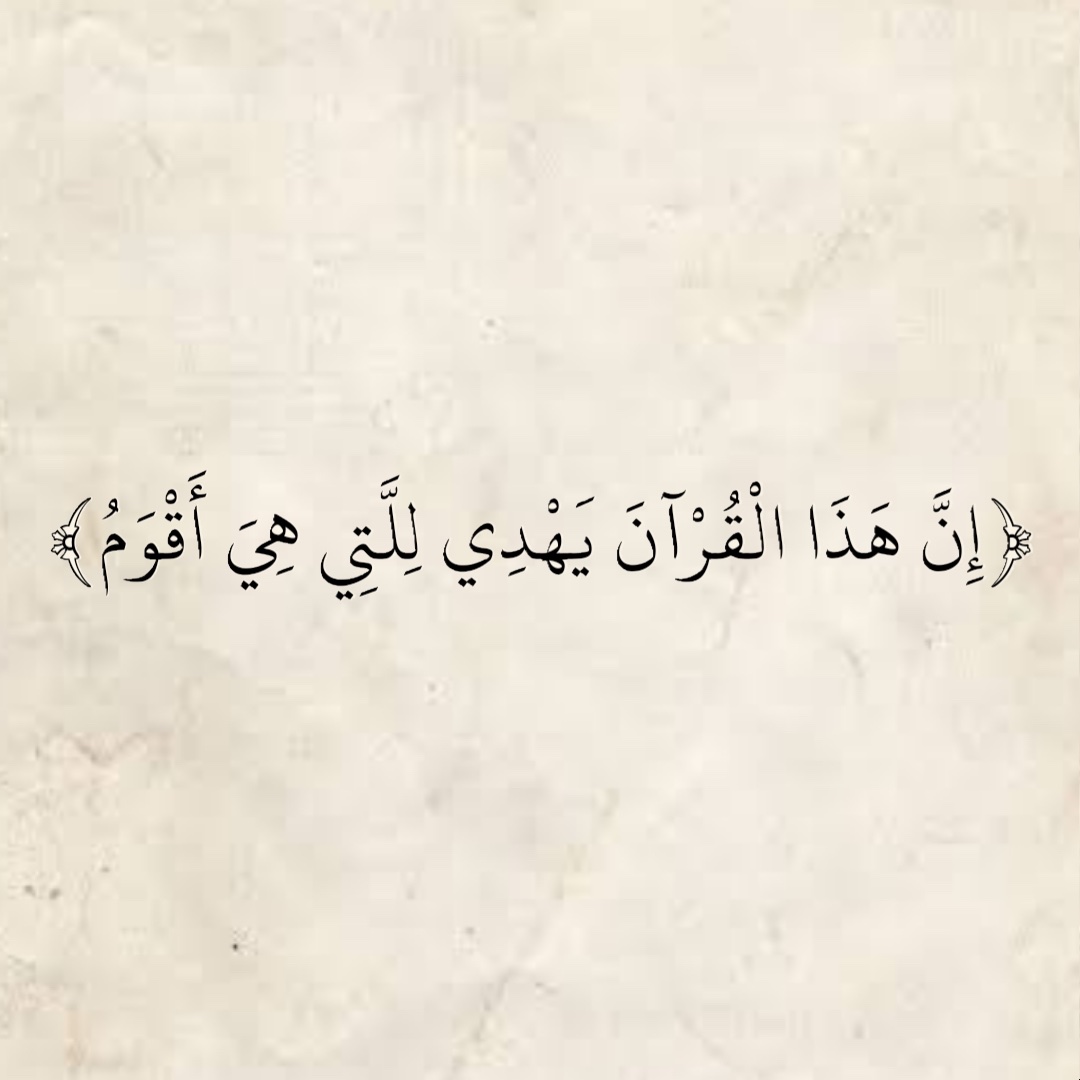 ﴿إِنَّ هَذَا الْقُرْآنَ يَهْدِي لِلَّتِي هِيَ أَقْوَمُ﴾